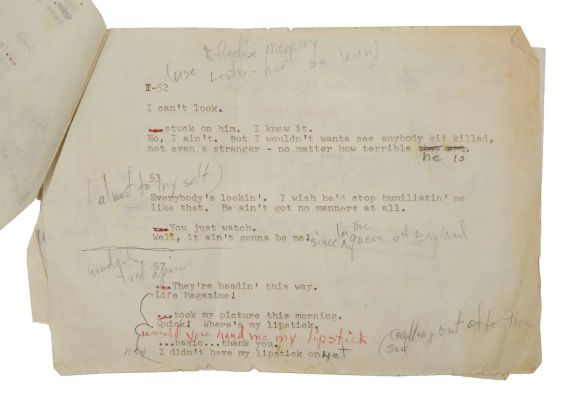 Effective memory
(use Lester - har
I-52
I can't look.
stuck on him. I knew it.
No, I ain't. But I wouldn't wanta see anybody git killed,
not even a stranger - no matter how terrible he is
53
(almost to my self)
Everybody's lookin'. I wish he'd stop humiliatin' me
like that. He ain't got no manners at all.
You just watch.
Well, it ain't gonna be me! I'm the
since queen of England
57
...They're headin' this way.
Life Magazine!
...took my picture this morning.
Quick! Where's my lipstick.
would you hand me my lipstick.
...basic...thank you.
I didn't have my lipstick on yet